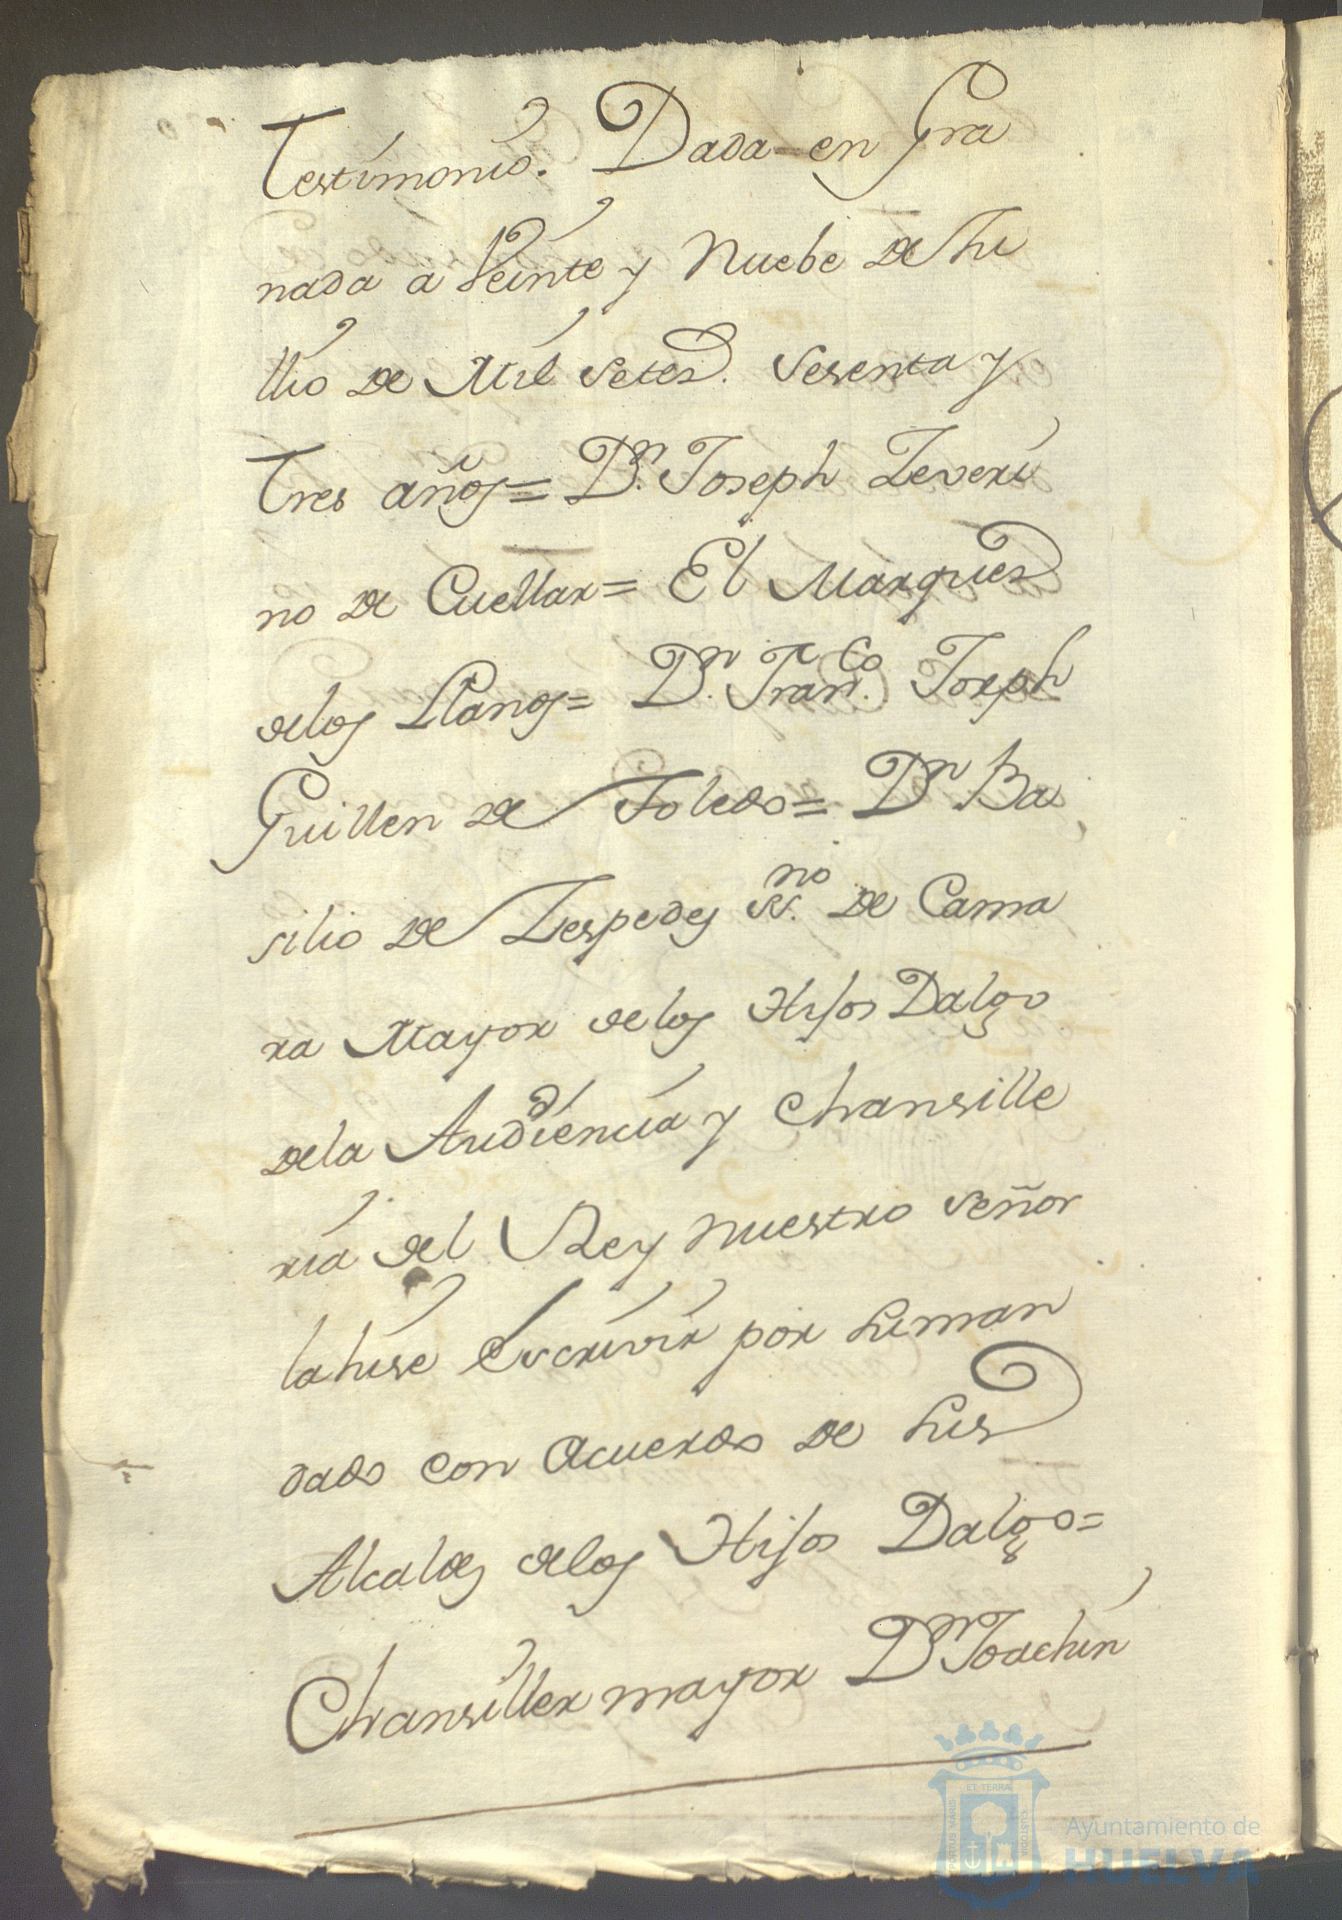 Testimonio. Dada en Gra
nada a Veinte y Nuebe de Ju
llio de Mil setes. sesenta y
Tres años= Dn. Joseph Zeveri
no de Cuellar= El Marques
delos Llanos= Dn. Franco. Joseph
Guillen de Toledo= Dn Ba
silio de Zespedes SSno. de Cama
ra Mayor delos Hijos Dalgo
dela Audiencia y Chansille
ria del Rey nuestro señor
la hise Escrivir por suman
dado con acuerdo de sus
Alcaldes delos Hijos Dalgo=
Chansiller mayor Dn Joachin
PORTUS MARIS
ET TERRÆ
CUSTODIA
Ayuntamiento de
HUELVA